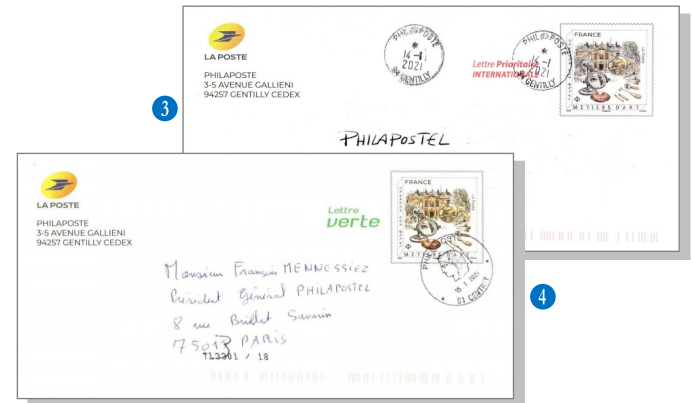 LA POSTE
PHILAPOSTE
3-5 AVENUE GALLIENI
94257 GENTILLY CEDEX
PHILAPOSTE
*
14-1
2021
94 GENTILLY
Lettre Prioritaire
INTERNATIONALE
PHILAPOSTE
*
14-1
2021
94 GENTILLY
FRANCE
MÉTIERS D'ART
3
PHILAPOSTEL
LA POSTE
PHILAPOSTE
3-5 AVENUE GALLIENI
94257 GENTILLY CEDEX
Lettre
verte
FRANCE
MÉTIERS D'ART
15 1 2021
GENTILLY
Monsieur François MENNESSIEZ
Président Général PHILAPOSTEL
8 rue Brillat Savarin
75013 PARIS
713301 / 18
4